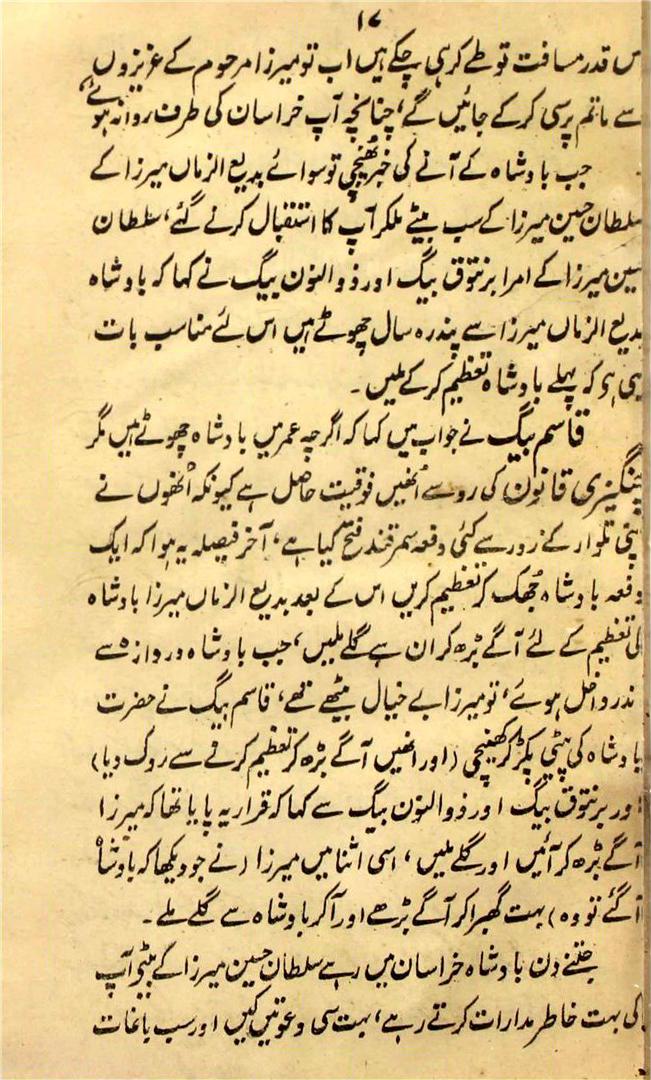 ۱۷
اس قدر مسافت تو طے کر ہی چکے ہیں اب تو میرزا مرحوم کے عزیزوں
سے ماتم پرسی کر کے جائیں گے، چنانچہ آپ خراسان کی طرف روانہ ہوئے،
جب بادشاہ کے آنے کی خبر پُھنچی تو سوائے بدیع الزماں میرزا کے
سلطان حسین میرزا کے سب بیٹے ملکر آپ کا استقبال کرنے گئے، سلطان
حسین میرزا کے امرا برنتوق بیگ اور ذوالنون بیگ نے کہا کہ بادشاہ
بدیع الزماں میرزا سے پندرہ سال چھوٹے ہیں اس لئے مناسب بات
یہی ہی کہ پہلے بادشاہ تعظیم کر کے ملیں۔
قاسم بیگ نے جواب میں کہا کہ اگرچہ عمر میں بادشاہ چھوٹے ہیں مگر
چنگیزی قانون کی رو سے اُنھیں فوقیت حاصل ہے کیونکہ اُنھوں نے
اپنی تلوار کے زور سے کئی دفعہ سمرقند فتح کیا ہے، آخر فیصلہ یہ ہوا کہ ایک
دفعہ بادشاہ جُھک کر تعظیم کریں اس کے بعد بدیع الزماں میرزا بادشاہ
کی تعظیم کے لئے آگے بڑھ کر ان سے گلے ملیں، جب بادشاہ دروازہ سے
اندر داخل ہوئے، تو میرزا بے خیال بیٹھے تھے، قاسم بیگ نے حضرت
بادشاہ کی پیٹی پکڑ کر کھینچی (اور انھیں آگے بڑھ کر تعظیم کرنے سے روک دیا)
اور برنتوق بیگ اور ذوالنون بیگ سے کہا کہ قرار یہ پایا تھا کہ میرزا
آگے بڑھ کر آئیں اور گلے ملیں، اسی اثنا میں میرزا (نے جو دیکھا کہ بادشاہ
آگئے تو وہ) بہت گھبرا کر آگے بڑھے اور آ کر بادشاہ سے گلے ملے۔
جتنے دن بادشاہ خراسان میں رہے سلطان حسین میرزا کے بیٹے آپ
کی بہت خاطر مدارات کرتے رہے، بہت سی دعوتیں کیں اور سب باغات